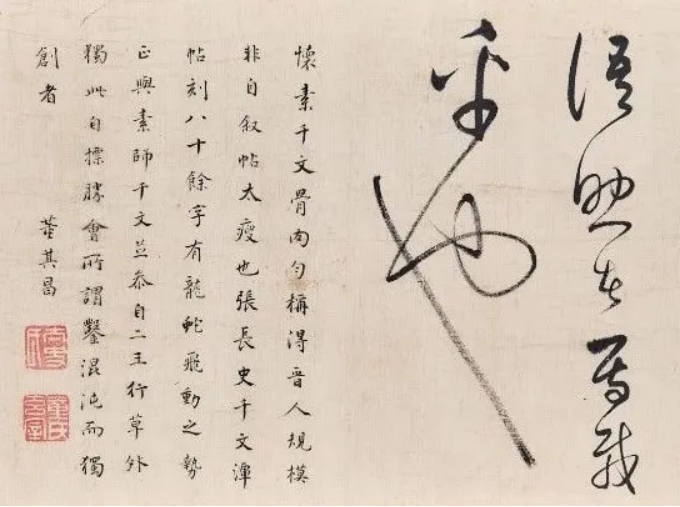 語助者焉哉
乎也
懷素千文骨肉勻稱得晉人規模
非自叙帖太瘦也張長史千文渾
帖刻八十餘字有龍蛇飛動之勢
正與素師千文並叅自二王行草外
獨此自標勝會所謂鑿混沌而獨
創者
董其昌
太史氏
董氏玄宰